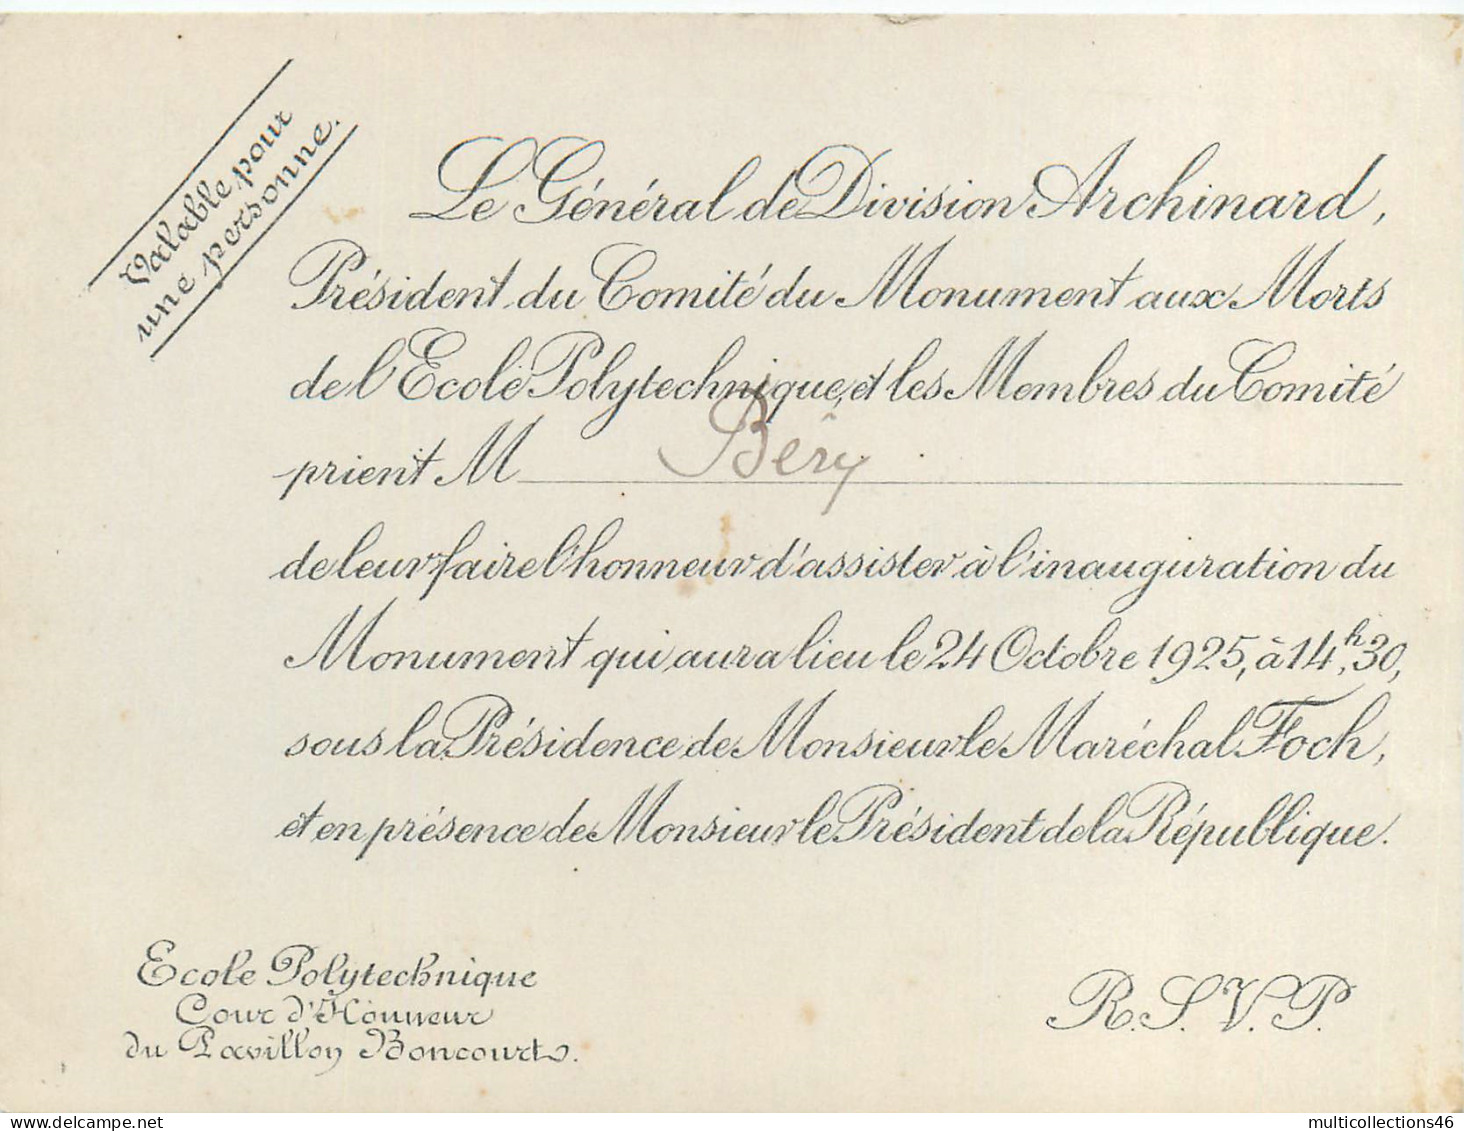 Valable pour
une personne.
Le Général de Division Archinard,
Président du Comité du Monument aux Morts
de l'Ecole Polytechnique, et les Membres du Comité
prient M Bêry
de leur faire l'honneur d'assister à l'inauguration du
Monument qui aura lieu le 24 Octobre 1925, à 14h,30,
sous la Présidence de Monsieur le Maréchal Foch,
et en présence de Monsieur le Président de la République.
Ecole Polytechnique
Cour d'Honneur
du Pavillon Boncourt.
R.S.V.P.
multicollections46